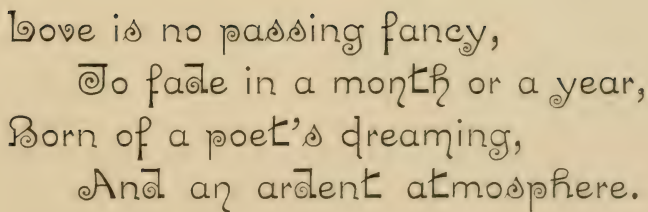 Love is no passing fancy,
To fade in a month or a year,
Born of a poet's dreaming,
And an ardent atmosphere.